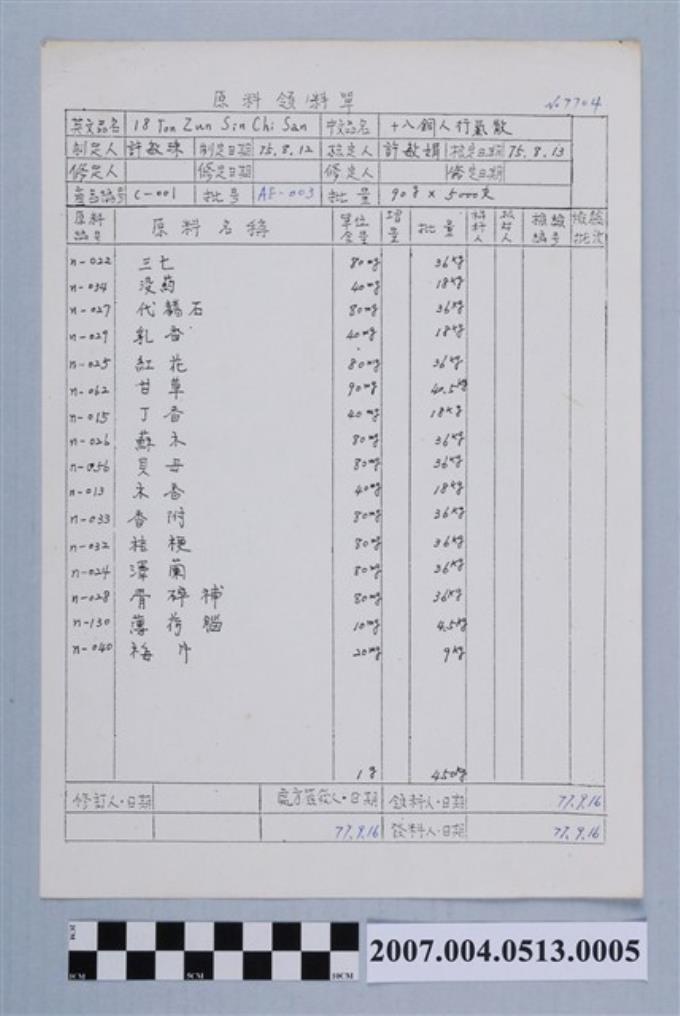 原料領料單
No 7704
英文品名 18 Ton Zun Sin Chi San 中文品名 十八銅人行氣散
制定人 許敏珠 制定日期 75.8.12 核定人 許敏娟 核定日期 75.8.13
修定人 修定日期 修定人 修定日期
產品編號 C-001 批号 AF-003 批量 90g × 5000支
原料編号 原料名稱 單位含量 增量 批量 檢驗編号 檢驗批次
n-022 三七 80mg 36kg
n-034 没药 40mg 18kg
n-027 代赭石 80mg 36kg
n-029 乳香 40mg 18kg
n-025 紅花 80mg 36kg
n-062 甘草 90mg 40.5kg
n-015 丁香 40mg 18kg
n-026 蘇木 80mg 36kg
n-056 貝母 80mg 36kg
n-013 木香 40mg 18kg
n-033 香附 80mg 36kg
n-032 桔梗 80mg 36kg
n-024 澤蘭 80mg 36kg
n-028 骨碎補 80mg 36kg
n-130 薄荷腦 10mg 4.5kg
n-040 梅片 20mg 9kg
1g 450kg
修訂人·日期 領料人·日期 77.9.16
77.9.16 發料人·日期 77.9.16
1CM 5CM 10CM
2007.004.0513.0005